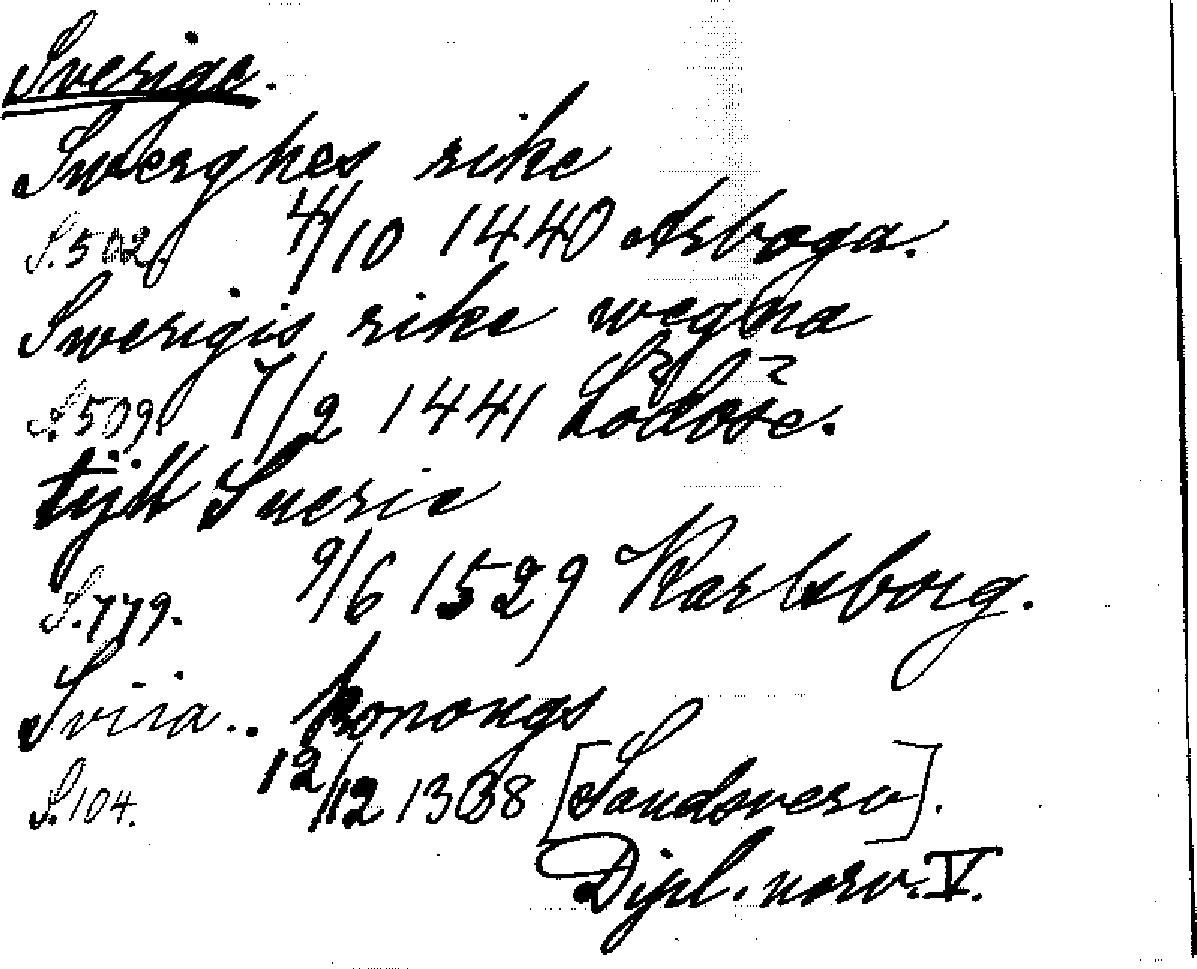 Sverige.
Swerghes rike
S. 502. 4/10 1440 Arboga.
Swerigis rike wegna
S. 509. 7/2 1441 Lödöse.
tijll Suerie
S. 779. 9/6 1529 Karlsborg.
Sviia.. konongs
S. 104. 12/12 1388 [Sandsverv].
Dipl. norv. V.